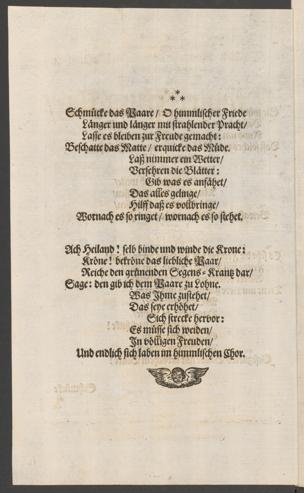 Schmücke das Paare / O himmlischer Friede
Länger und länger mit strahlender Pracht /
Lasse es bleiben zur Freude gemacht:
Beschatte das Matte / erquicke das Müde.
Laß nimmer ein Wetter /
Versehren die Blätter:
Gib was es anfähet /
Das alles gelinge /
Hilff daß es vollbringe /
Wornach es so ringet / wornach es so stehet.
Ach Heiland! selb binde und winde die Krone:
Kröne! bekröne das liebliche Paar /
Reiche den grünenden Segens-Krantz dar /
Sage: den gib ich dem Paare zu Lohne.
Was Ihme zustehet /
Das seye erhöhet /
Sich strecke hervor:
Es müsse sich weiden /
In völligen Freuden /
Und endlich sich laben im himmlischen Chor.